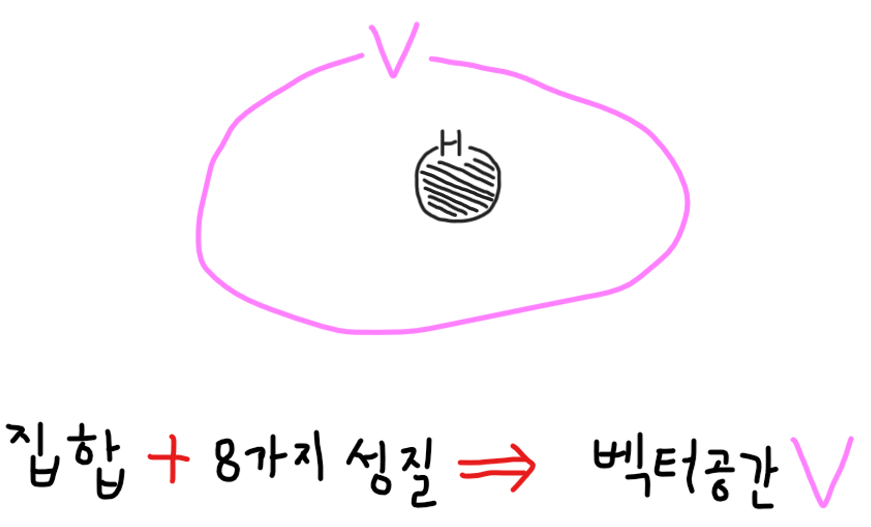 V
H
집합 + 8가지 성질 ⇒ 벡터공간 V